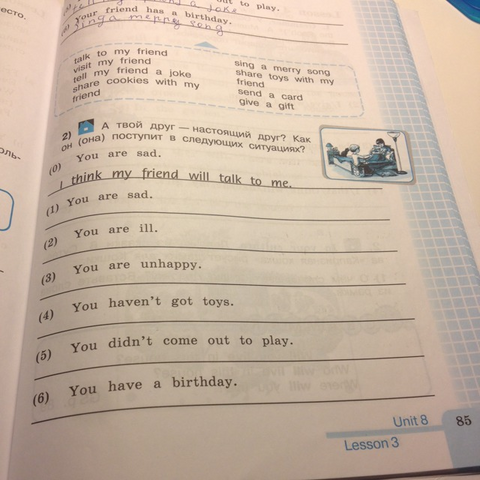 есто.
out to play.
a joke
Your friend has a birthday.
Singa merry song
talk to my friend
visit my friend
tell my friend a joke
share cookies with my
friend
sing a merry song
share toys with my
friend
send a card
give a gift
2) А твой друг — настоящий друг? Как
он (она) поступит в следующих ситуациях?
(0) You are sad.
I think my friend will talk to me.
(1) You are sad.
(2) You are ill.
(3) You are unhappy.
(4) You haven't got toys.
(5) You didn't come out to play.
(6) You have a birthday.
Unit 8 85
Lesson 3